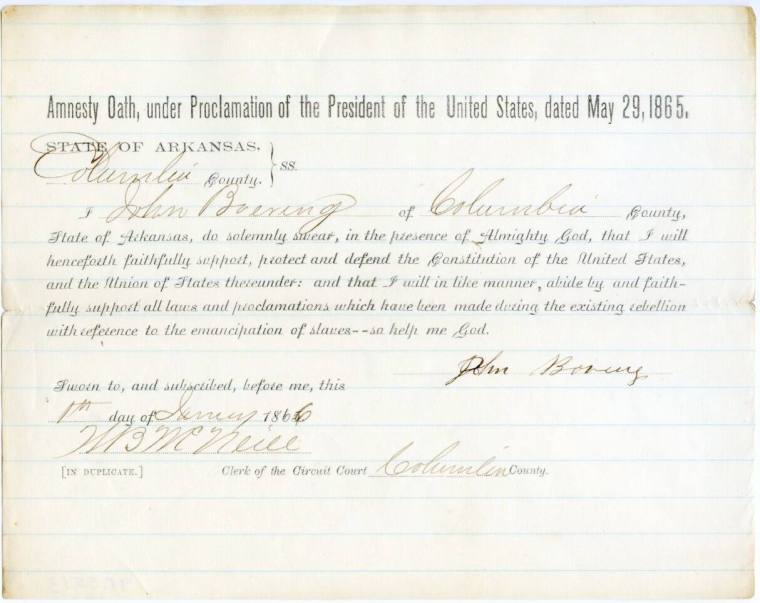 Amnesty Oath, under Proclamation of the President of the United States, dated May 29, 1865.
STATE OF ARKANSAS. } SS.
Columbia County.
I John Boering of Columbia County,
State of Arkansas, do solemnly swear, in the presence of Almighty God, that I will
henceforth faithfully support, protect and defend the Constitution of the United States,
and the Union of States thereunder: and that I will in like manner, abide by and faith-
fully support all laws and proclamations which have been made during the existing rebellion
with reference to the emancipation of slaves--so help me God.
John Boring
Sworn to, and subscribed, before me, this
day of 1866
W B McNeill
[IN DUPLICATE.] Clerk of the Circuit Court Columbia County.